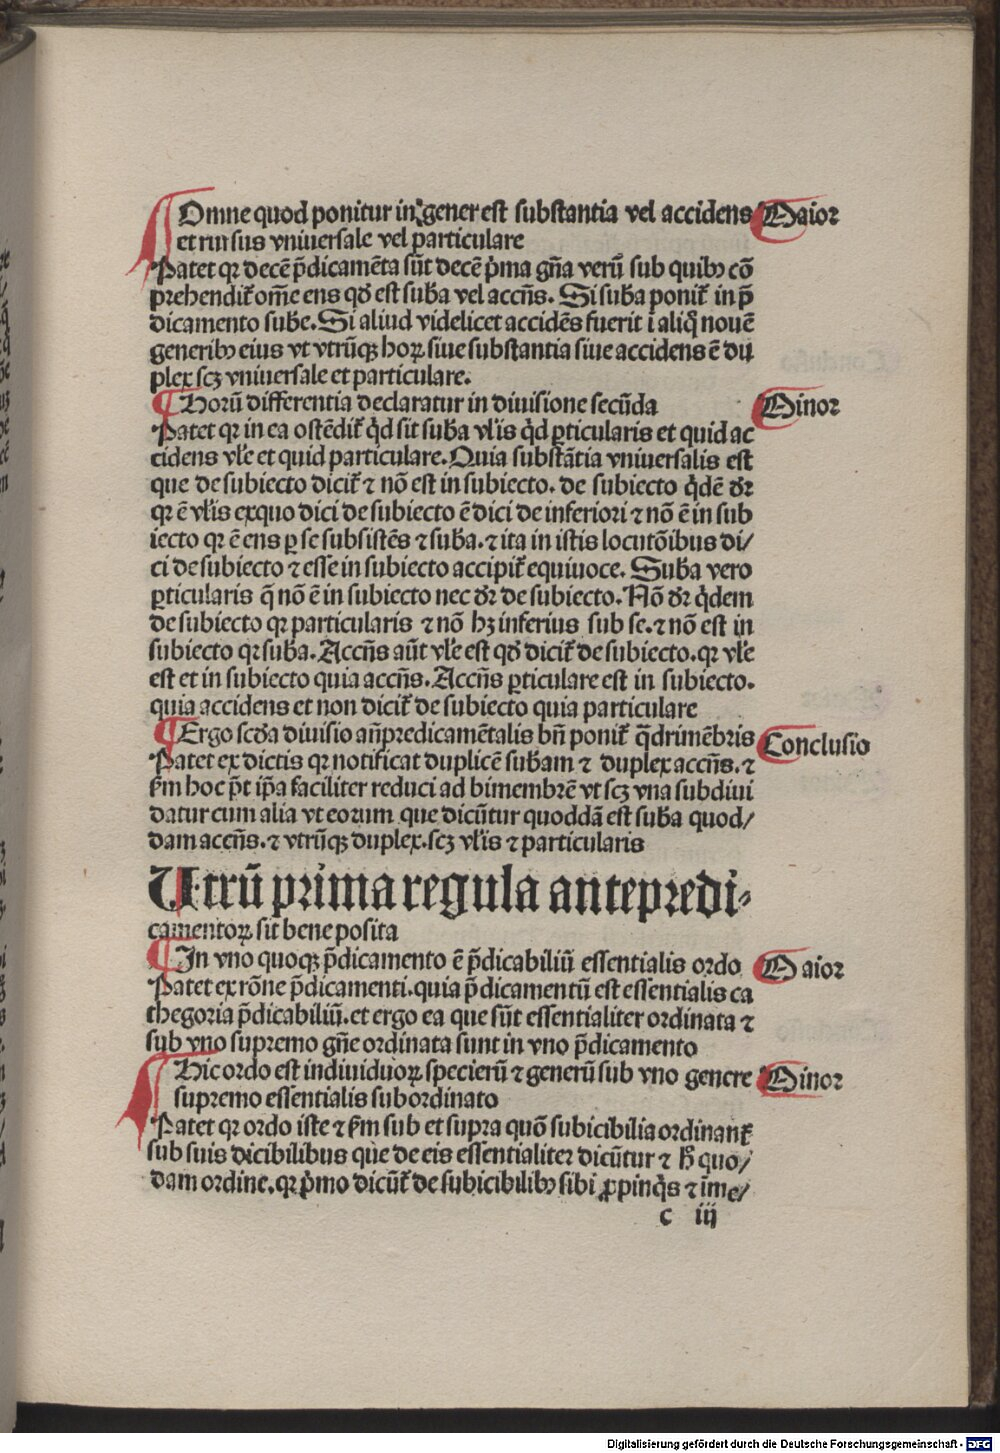 Omne quod ponitur in gener est substantia vel accidens Maior
et rursus vniuersale vel particulare
Patet qꝛ decē p̄dicamēta sūt decē p̓ma gn̄a verū sub quibꝯ cō
prehendit᷑ om̄e ens qđ est sub̄a vel accn̄s. Si sub̄a ponit᷑ in p̄
dicamento sub̄e. Si aliud videlicet accidēs fuerit ī aliq̊ nouē
generibꝯ eius vt vtrūqꝫ hoꝝ siue substantia siue accidens ē du
plex scꝫ vniuersale et particulare.
¶ Horū differentia declaratur in diuisione secūda Minor
Patet qꝛ in ea ostēdit᷑ q̇d sit sub̄a vl̓is q̇d ꝑticularis et quid ac
cidens vl̓e et quid particulare. Quia substātia vniuersalis est
que de subiecto dicit᷑ ⁊ nō est in subiecto. de subiecto q̇dē dr̄
qꝛ ē vl̓is exquo dici de subiecto ē dici de inferiori ⁊ nō ē in sub
iecto qꝛ ē ens ꝑ se subsistēs ⁊ sub̄a. ⁊ ita in istis locutōibus di/
ci de subiecto ⁊ esse in subiecto accipit᷑ equiuoce. Sub̄a vero
ꝑticularis q̄ nō ē in subiecto nec dr̄ de subiecto. Nō dr̄ q̇dem
de subiecto qꝛ particularis ⁊ nō hꝫ inferius sub se. ⁊ nō est in
subiecto qꝛ sub̄a. Accn̄s aūt vl̓e est qđ dicit᷑ de subiecto. qꝛ vl̓e
est et in subiecto quia accn̄s. Accn̄s ꝑticulare est in subiecto.
quia accidens et non dicit᷑ de subiecto quia particulare
¶ Ergo scd̓a diuisio an̄predicamētalis bn̄ ponit᷑ q̄drimēbris Conclusio
Patet ex dictis qꝛ notificat duplicē sub̄am ⁊ duplex accn̄s. ⁊
ẜm hoc p̄t ip̄a faciliter reduci ad bimembrē vt scꝫ vna subdiui
datur cum alia vt eorum que dicūtur quoddā est sub̄a quod/
dam accn̄s. ⁊ vtrūqꝫ duplex. scꝫ vl̓is ⁊ particularis
Utrū prima regula antepredi-
camentoꝝ sit bene posita
¶ In vno quoqꝫ p̄dicamento ē p̄dicabiliū essentialis ordo Maior
Patet ex rōne p̄dicamenti. quia p̄dicamentū est essentialis ca
thegoria p̄dicabiliū. et ergo ea que sūt essentialiter ordinata ⁊
sub vno supremo gn̄e ordinata sunt in vno p̄dicamento
Hic ordo est indiuiduoꝝ specierū ⁊ generū sub vno genere Minor
supremo essentialis subordinato
Patet qꝛ ordo iste ⁊ ẜm sub et supra quō subicibilia ordinant᷑
sub suis dicibilibus que de eis essentialiter dicūtur ⁊ h̓ quo/
dam ordine. qꝛ p̓mo dicūt᷑ de subicibilibꝯ sibi ꝓpinq̇s ⁊ īme/
c iij
Digitalisierung gefördert durch die Deutsche Forschungsgemeinschaft - DFG